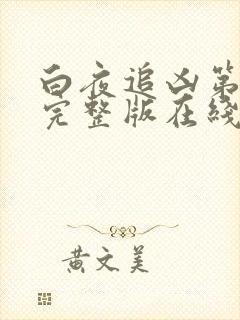 白夜追凶第
完整版在线
黄文美